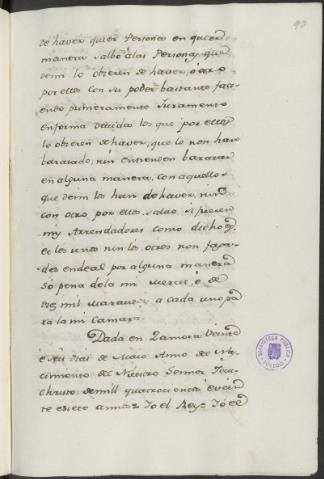 90
de haver qui er Personas en qu er
manera salbo alas Personas que
demi lo obieren de haver, o otro
por ellos con su poder bastante fac
iendo primeramente Juramento
en forma devida los que por ellos
lo obieren de haver, que lo non han
baratado, nin entienden baratar
en alguna manera, con aquellos
que demi les han de haver, nin
con otro por ellos salvo si fueren
mis Arrendadores como dicho es,
e los unos nin los otros non faga
des endeal por alguna manera
so pena dela mi merced, e de
diez mil maravedis a cada uno pa
ra la mi Camara.
Dada en Zamora veinte
e seis dias de Mayo Anno del nas
cimiento del Nuestro Sennor Jesu
Christo de mill quatrocientos e vein
te e siete annos Yo el Rey= Yo
BIBLIOTECA PUBLICA
TOLEDO